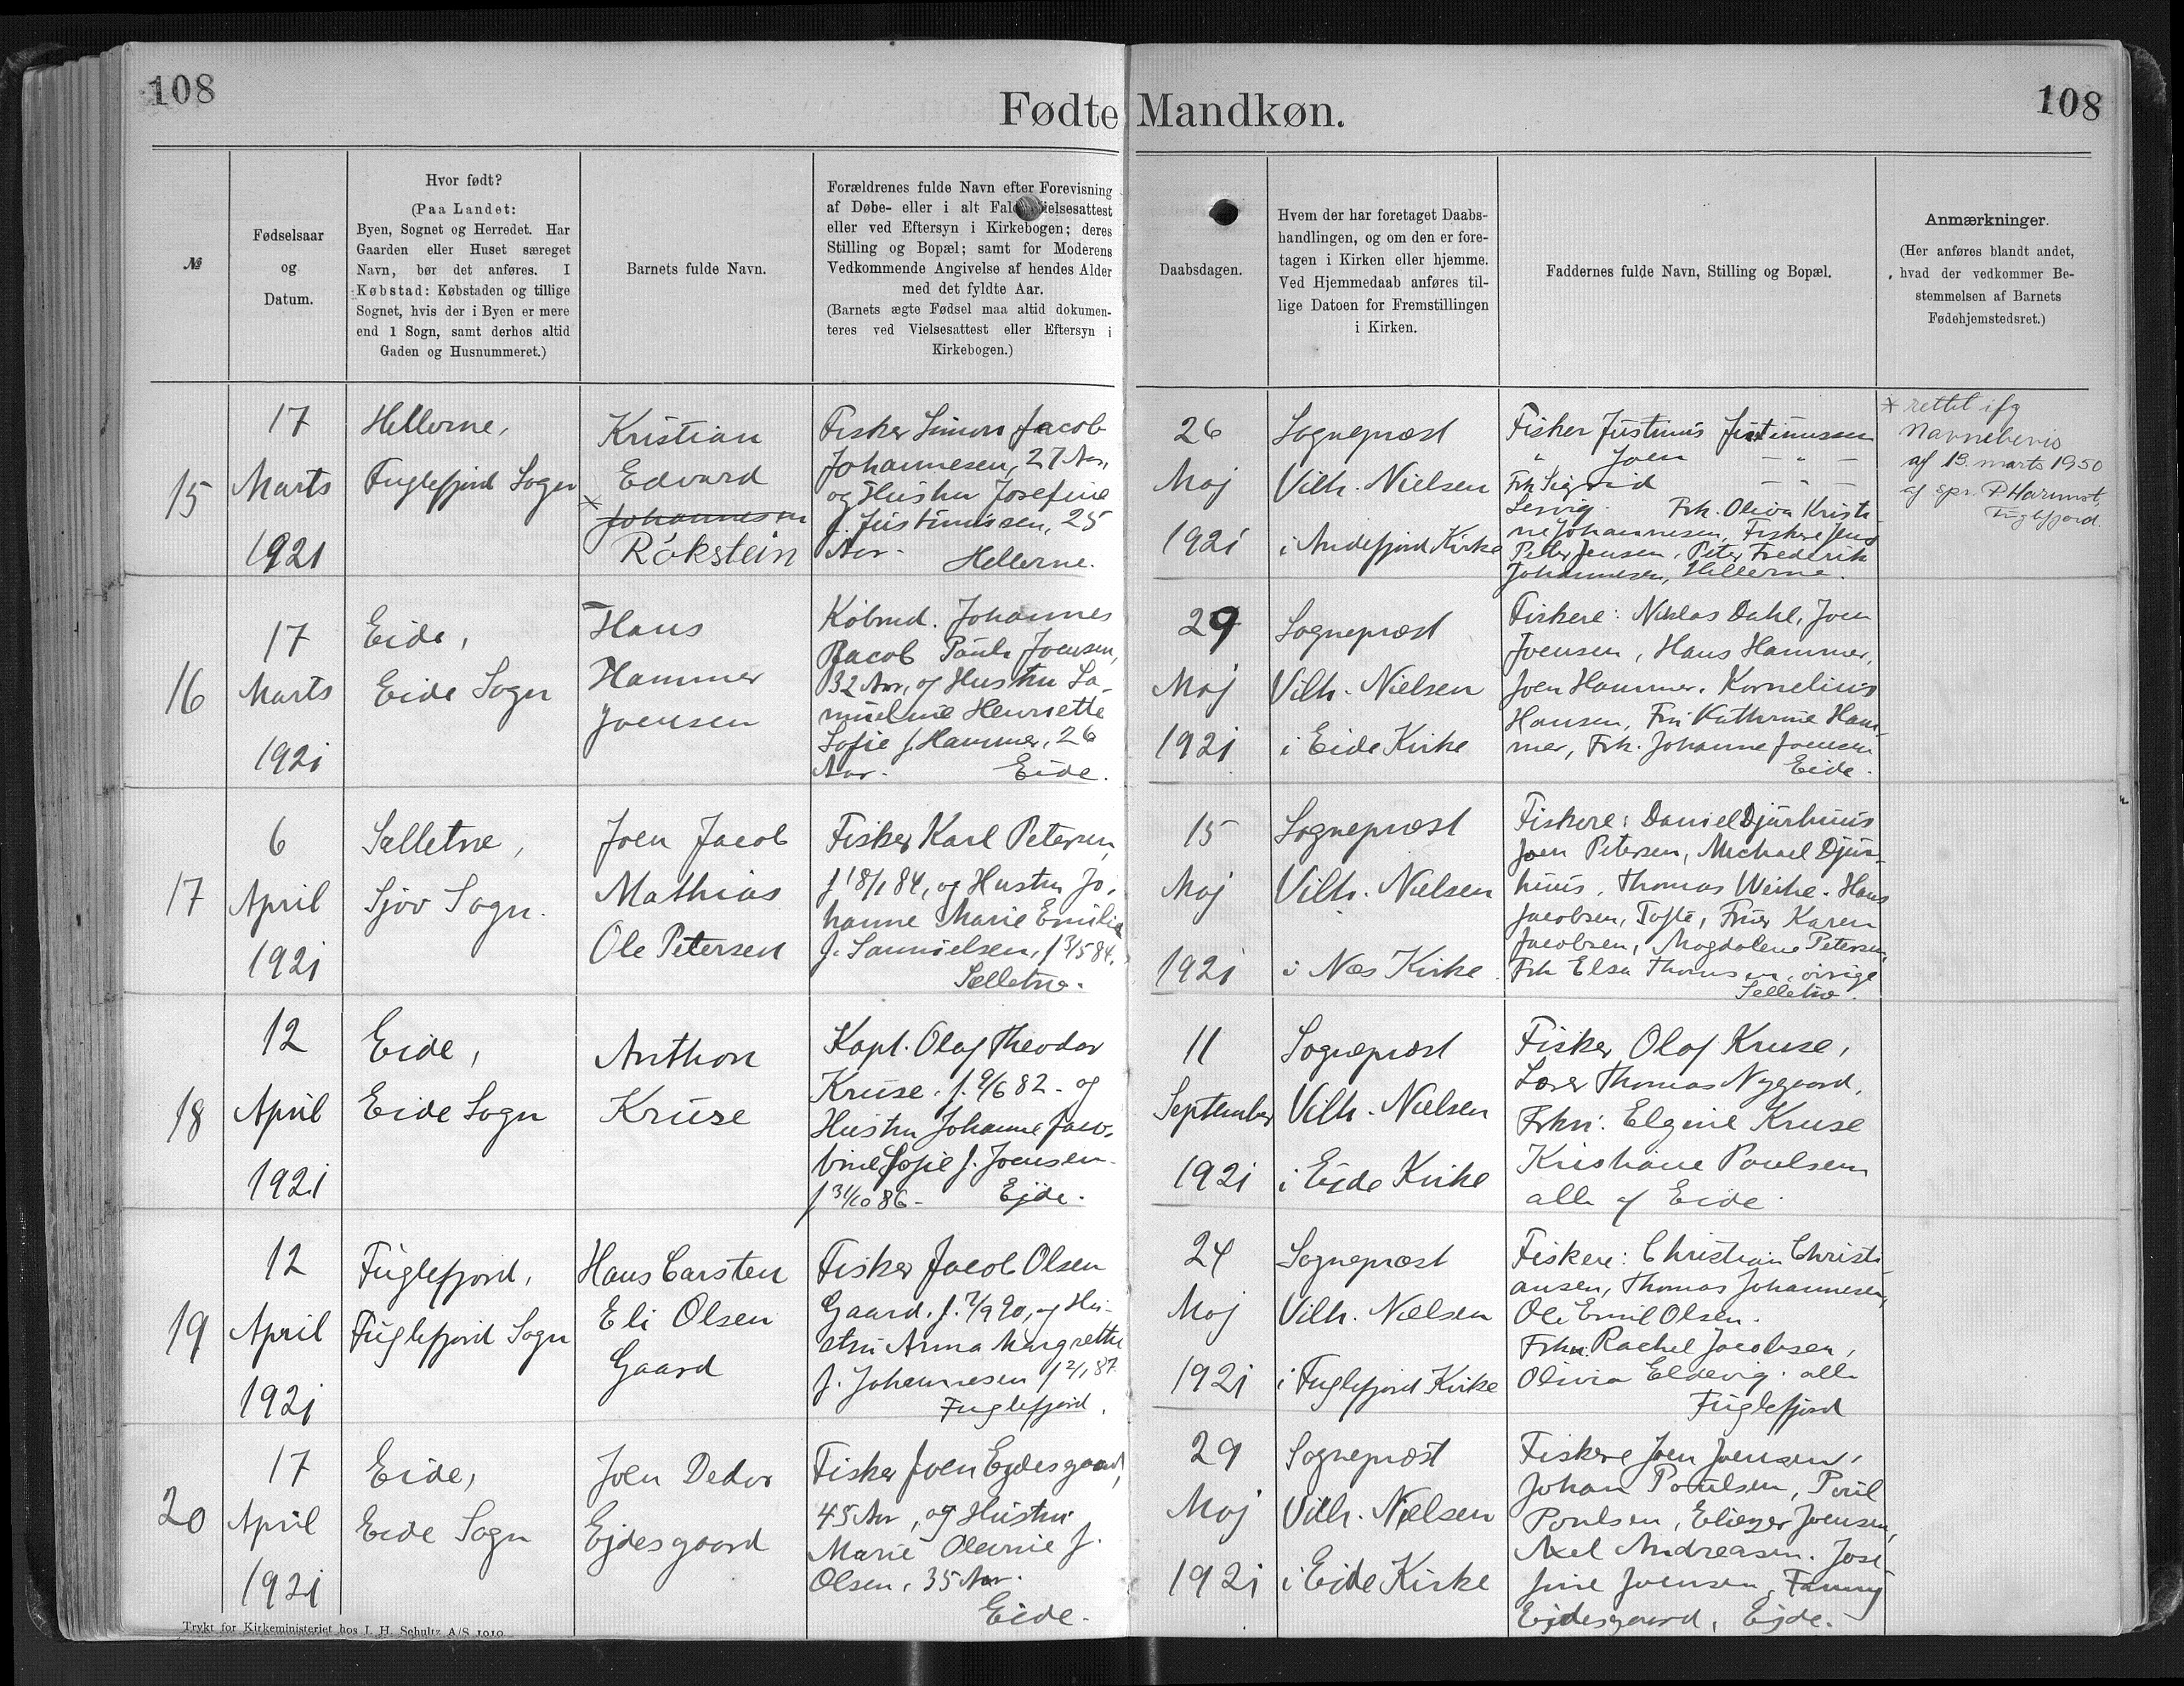 108
Fødte Mandkøn.
108
№
Fødselsaar
og
Datum.
Hvor født?
(Paa Landet:
Byen, Sognet og Herredet. Har
Gaarden eller Huset særeget
Navn, bør det anføres. I
Købstad: Købstaden og tillige
Sognet, hvis der i Byen er mere
end 1 Sogn, samt derhos altid
Gaden og Husnummeret.)
Barnets fulde Navn.
Forældrenes fulde Navn efter Forevisning
af Døbe- eller i alt Fald Vielsesattest
eller ved Eftersyn i Kirkebogen; deres
Stilling og Bopæl; samt for Moderens
Vedkommende Angivelse af hendes Alder
med det fyldte Aar.
(Barnets ægte Fødsel maa altid dokumen-
teres ved Vielsesattest eller Eftersyn i
Kirkebogen.)
Daabsdagen.
Hvem der har foretaget Daabs-
handlingen, og om den er fore-
tagen i Kirken eller hjemme.
Ved Hjemmedaab anføres til-
lige Datoen for Fremstillingen
i Kirken.
Faddernes fulde Navn, Stilling og Bopæl.
Anmærkninger.
(Her anføres blandt andet,
hvad der vedkommer Be-
stemmelsen af Barnets
Fødehjemstedsret.)
15
17
Marts
1921
Hellerne,
Fuglefjord Sogn
Kristian
Edvard
* Johannesen
Rókstein
Fisker Simon Jacob
Johannesen, 27 Aar,
og Hustru Josefine
f. Justinussen, 25
Aar. Hellerne.
26
Maj
1921
Sognepræst
Vilh. Nielsen
i Andefjord Kirke
Fisker Justinus Justinussen
" Joen — " —
Frk Sigrid — " —
Frk. Oliva Kristi-
ne Johannesen, Fiskere Jens
Peter Jensen, Peter Frederik
Johannesen, Hellerne.
* rettet ifg
Navnebevis
af 13. marts 1950
af spr.
Fuglefjord.
16
17
Marts
1921
Eide,
Eide Sogn
Hans
Hammer
Joensen
Købmd. Johannes
Jacob Pauli Joensen,
32 Aar, og Hustru Sa-
mueline Henriette
Sofie f. Hammer, 26
Aar. Eide.
29
Maj
1921
Sognepræst
Vilh. Nielsen
i Eide Kirke
Fiskere: Niklas Dahl, Joen
Joensen, Hans Hammer,
Joen Hammer, Kornelius
Hansen, Fru Kathrine Ham-
mer, Frk. Johanne Joensen
Eide.
17
6
April
1921
Selletræ,
Sjov Sogn.
Joen Jacob
Mathias
Ole Petersen
Fisker Karl Petersen,
f 18/1 84, og Hustru Jo-
hanne Marie Emilie
f. Samuelsen, f 3/5 84.
Selletræ.
15
Maj
1921
Sognepræst
Vilh. Nielsen
i Næs Kirke
Fiskere: Daniel Djurhuus
Joen Petersen, Michael Djur-
huus, Thomas Weihe. Hans
Jacobsen, Tofte, Fruer Karen
Jacobsen, Magdalene Petersen,
Frk Elsa Thomsen, øvrige
Selletræ.
18
12
April
1921
Eide,
Eide Sogn
Anthon
Kruse
Kapt. Olaf Theodor
Kruse. f. 9/6 82. og
Hustru Johanne Jaco-
bine Sofie f. Joensen.
f 31/10 86 - Ejde.
11
September
1921
Sognepræst
Vilh. Nielsen
i Ejde Kirke
Fisker Olaf Kruse,
Lærer Thomas Nygaard,
Frkn: Elgine Kruse
Kristiane Poulsen
alle af Eide.
19
12
April
1921
Fuglefjord,
Fuglefjord Sogn
Hans Carsten
Eli Olsen
Gaard
Fisker Jacob Olsen
Gaard. f. 7/9 90, og Hu-
stru Anna Margrethe
f. Johannesen f 2/1 87.
Fuglefjord.
24
Maj
1921
Sognepræst
Vilh. Nielsen
i Fuglefjord Kirke
Fiskere: Christian Christi-
ansen, Thomas Johannesen,
Ole Emil Olsen.
Frkn. Rachel Jacobsen,
Olivia Eldevig. alle
Fuglefjord
20
17
April
1921
Eide,
Eide Sogn
Joen Dedor
Ejdesgaard
Fisker Joen Ejdesgaard,
45 Aar, og Hustru
Marie Olevine f.
Olsen, 35 Aar.
Eide.
29
Maj
1921
Sognepræst
Vilh. Nielsen
i Eide Kirke
Fiskere Joen Joensen,
Johan Poulsen, Poul
Poulsen, Eliezer Joensen,
Axel Andreasen. Jose-
fine Joensen, Fanny
Ejdesgaard, Ejde.
Trykt for Kirkeministeriet hos J. H. Schultz A/S 1919